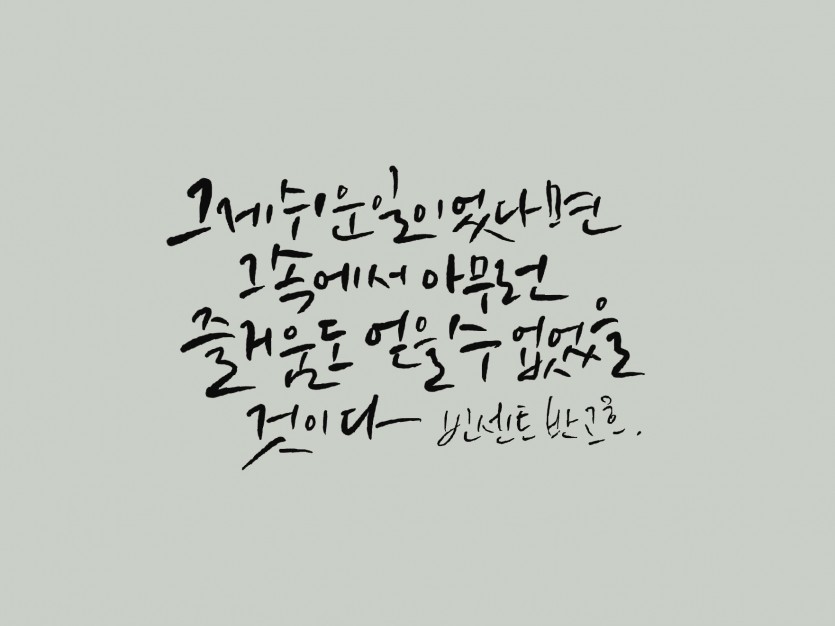 그게 쉬운 일이었다면
그 속에서 아무런
즐거움도 얻을 수 없었을
것이다 빈센트 반 고흐.